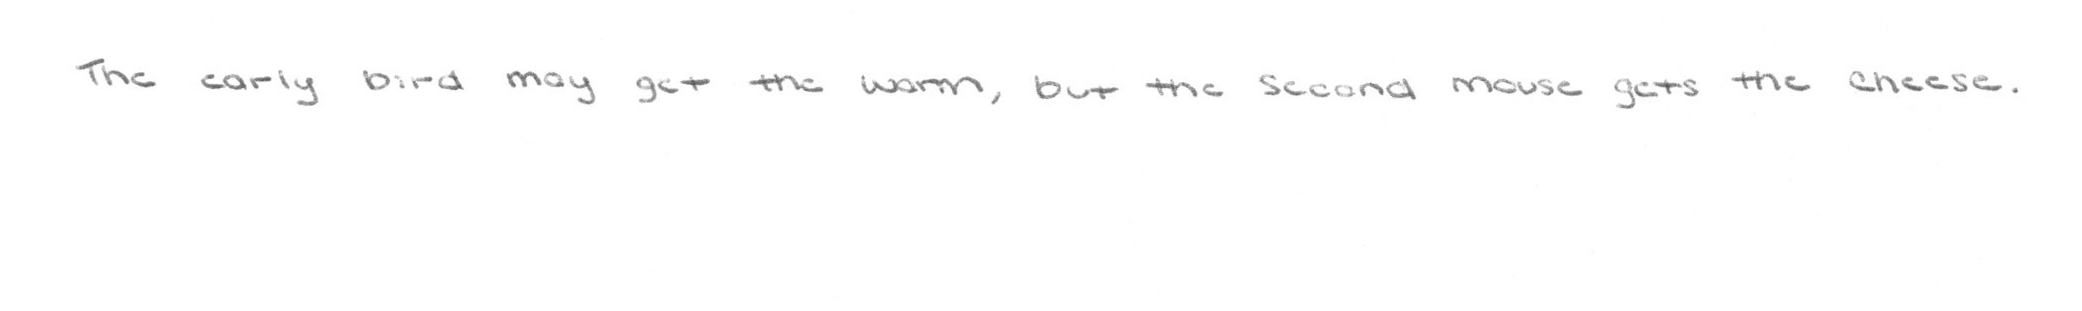 The early bird may get the worm, but the second mouse gets the cheese.